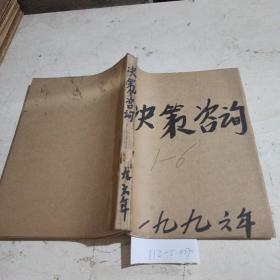 决策咨询
1-6
一九九六年
决策咨询
一九九六年